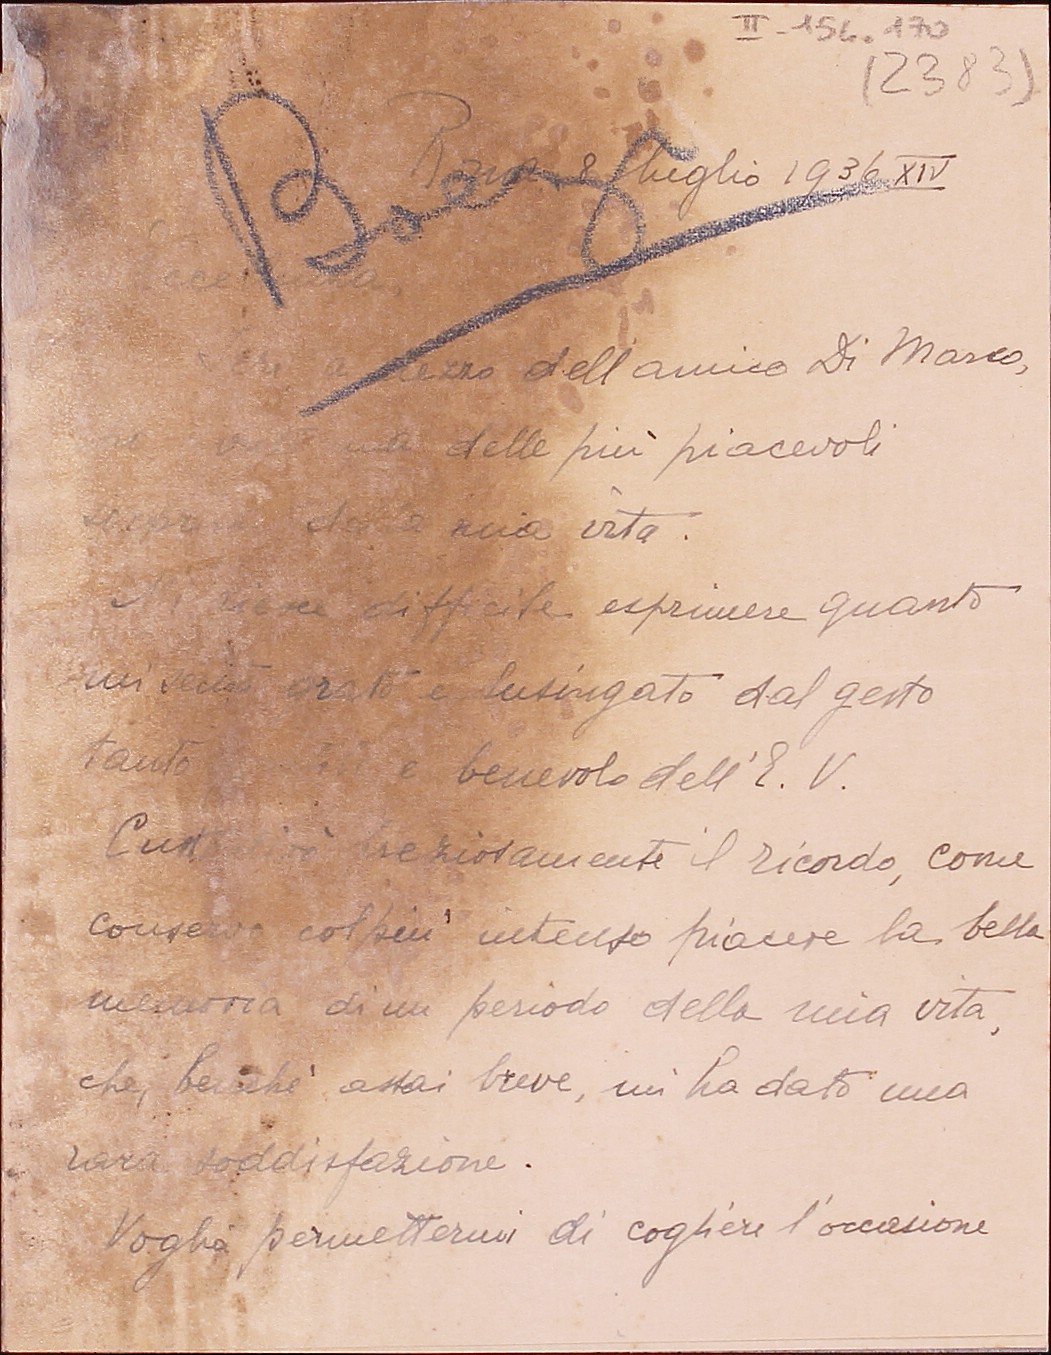 II - 156.170
(2383)
Roma 8 luglio 1936 XIV
a mezzo dell'amico Di Marco,
una delle più piacevoli
della mia vita.
Mi riesce difficile esprimere quanto
mi sento grato e lusingato dal gesto
tanto e benevolo dell'E. V.
preziosamente il ricordo, come
conservo col più intenso piacere la bella
memoria di un periodo della mia vita,
che, benché assai breve, mi ha dato una
rara soddisfazione.
Voglia permettermi di cogliere l'occasione